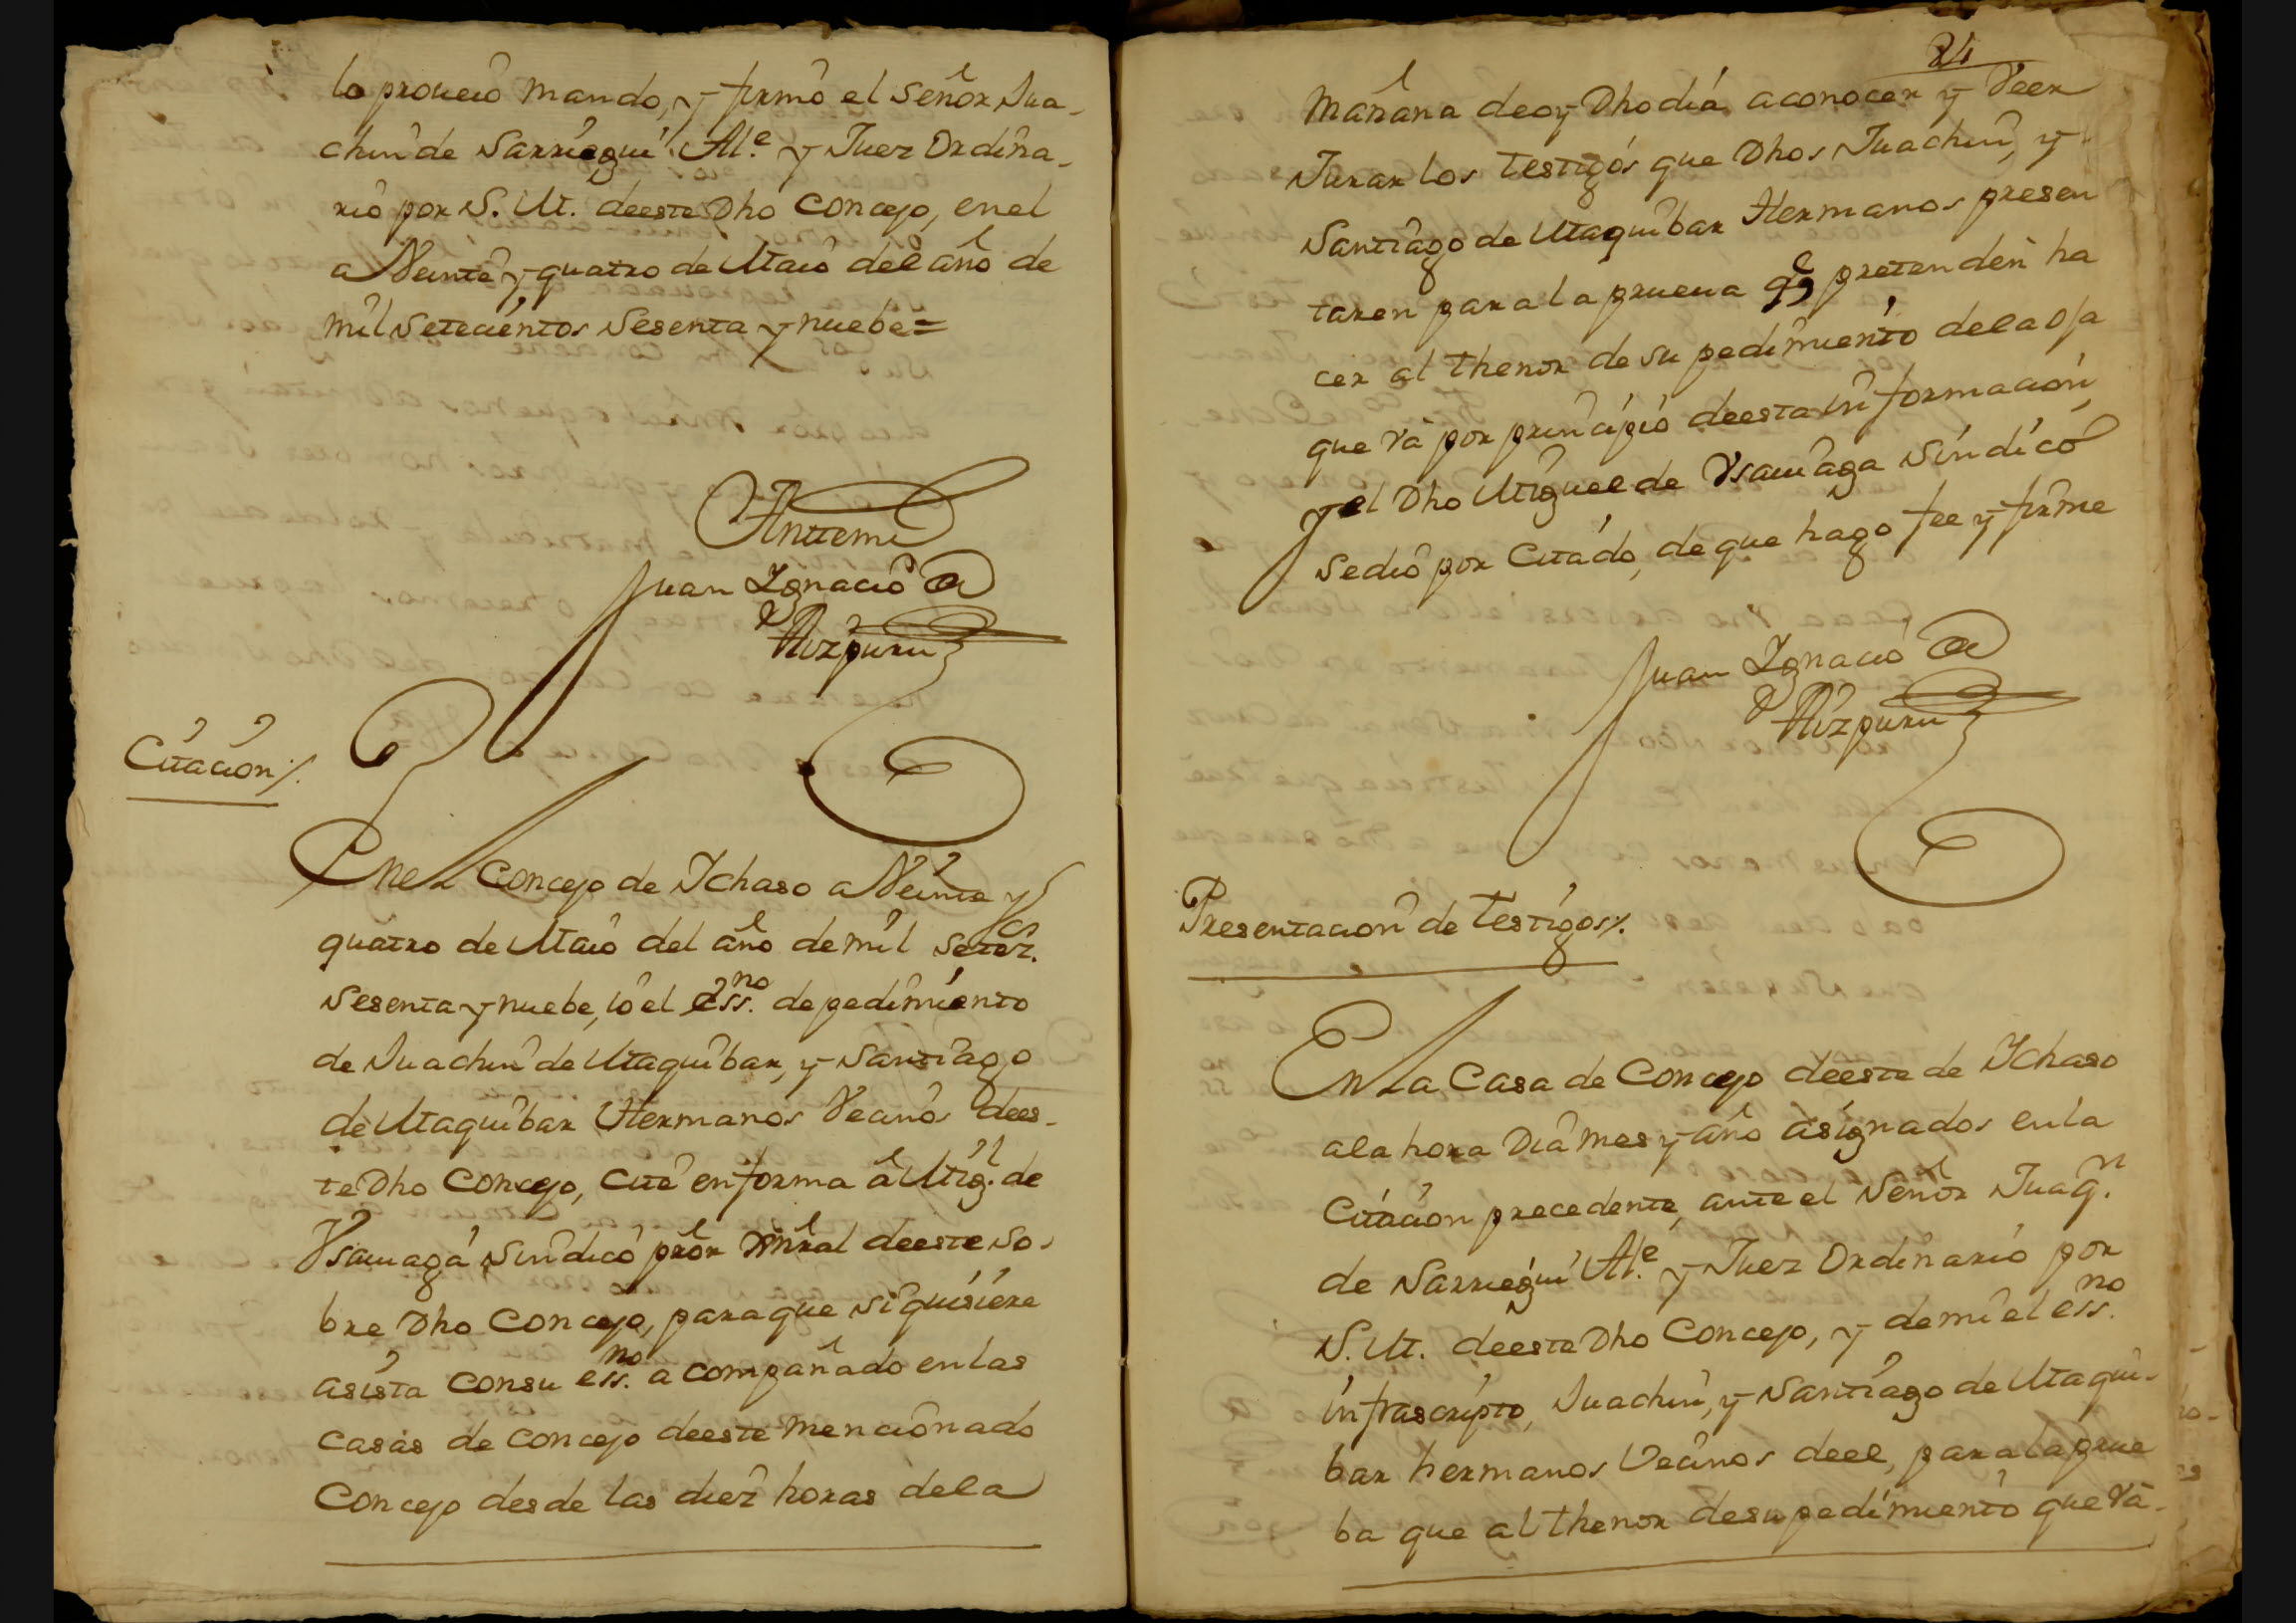 lo proueio mando, y firmò el Señor Jua-
chin de Sarriegui Al.e y Juez Ordina-
rio por S. M. deeste Dho Concejo, en el
a Veinte y quatro de Maio del año de
mil Setecientos Sesenta y nuebe=
Anttemi
Juan Ignacio
de Aizpuru
Citacion/.
En el Concejo de Ichaso a Veinte y
quatro de Maio del año de mil Setez.s
Sesenta y nuebe, io el ess.no de pedimiento
de Juachin de Maquibar, y Santiago
de Maquibar Hermanos Vecinos dees-
te Dho Concejo, cite en forma à Mig.l de
Ysauaga Sindico prõr gñral deeste No-
bre Dho Concejo, paraque si quisiere
asista consu ess.no acompañado en las
casas de concejo deeste mencionado
Concejo desde las diez horas dela
21
Mañana deoy Dho dia, aconocer y Veer
Jurar los testigos que Dhos Juachin, y
Santiago de Maquibar Hermanos presen
taren para la prueua q.e pretenden ha
cer al thenor de su pedimiento dela oja
que và por principio deesta informacion,
y el Dho Miguel de Ysauaga Sindico
sediò por Citado, de que hago fee y firme
Juan Ignacio
de Aizpuru
Presentacion de Testigos/.
En La Casa de Concejo deeste de Ichaso
ala hora Dia mes y año asignados en la
Citacion precedente, ante el Señor Juaq.n
de Sarriegui Al.e y Juez Ordinario por
S. M. deeste Dho Concejo, y demi el ess.no
infrascripto, Juachin, y Santiago de Maqui-
bar hermanos Vecinos deel, para la prue
ba que al thenor desu pedimiento que và-